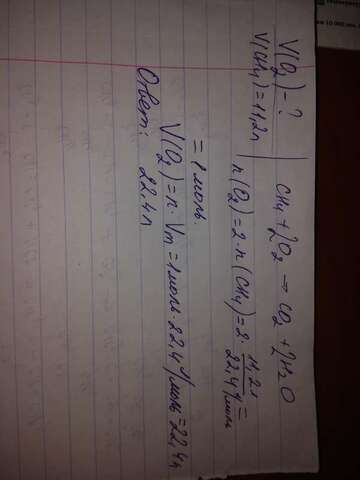 V(O₂) - ?
V(CH₄) = 11,2л
CH₄ + 2O₂ → CO₂ + 2H₂O
n(O₂) = 2·n(CH₄) = 2· 11,2л / 22,4 л/моль =
= 1 моль.
V(O₂) = n·Vm = 1моль·22,4 л/моль = 22,4л
Ответ: 22,4л